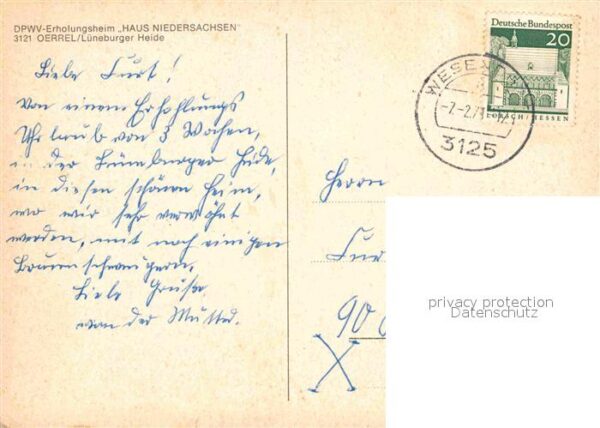 DPWV-Erholungsheim „HAUS NIEDERSACHSEN"
3121 OERREL/Lüneburger Heide
Liebe Curt!
Von einem Erhohlungs
Uhrlaub von 3 Wochen,
in der Lüneburger Heide,
in diesen schönen Heim,
wo wir sehr verwöhnt
werden, mit noch einigen
Liebe Grüße
von der Mutter.
Deutsche Bundespost
20
LORSCH/HESSEN
WESEN
-7.-2.73
3125
Herrn
Cur
90
privacy protection
Datenschutz